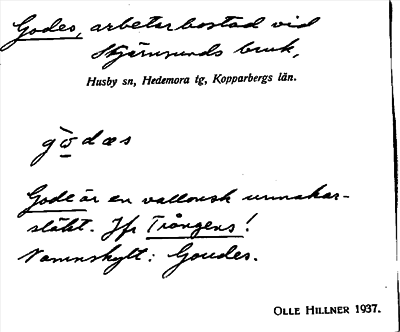 Godes, arbetarbostad vid
Stjärnsunds bruk,
Husby sn, Hedemora tg, Kopparbergs län.
gòdæs
Gode är en vallonsk urmakar-
släkt. Jfr Trångens!
Namnskylt: Goudes.
OLLE HILLNER 1937.